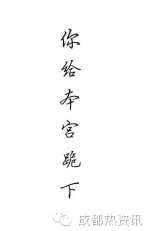 你给本宫跪下
成都热资讯